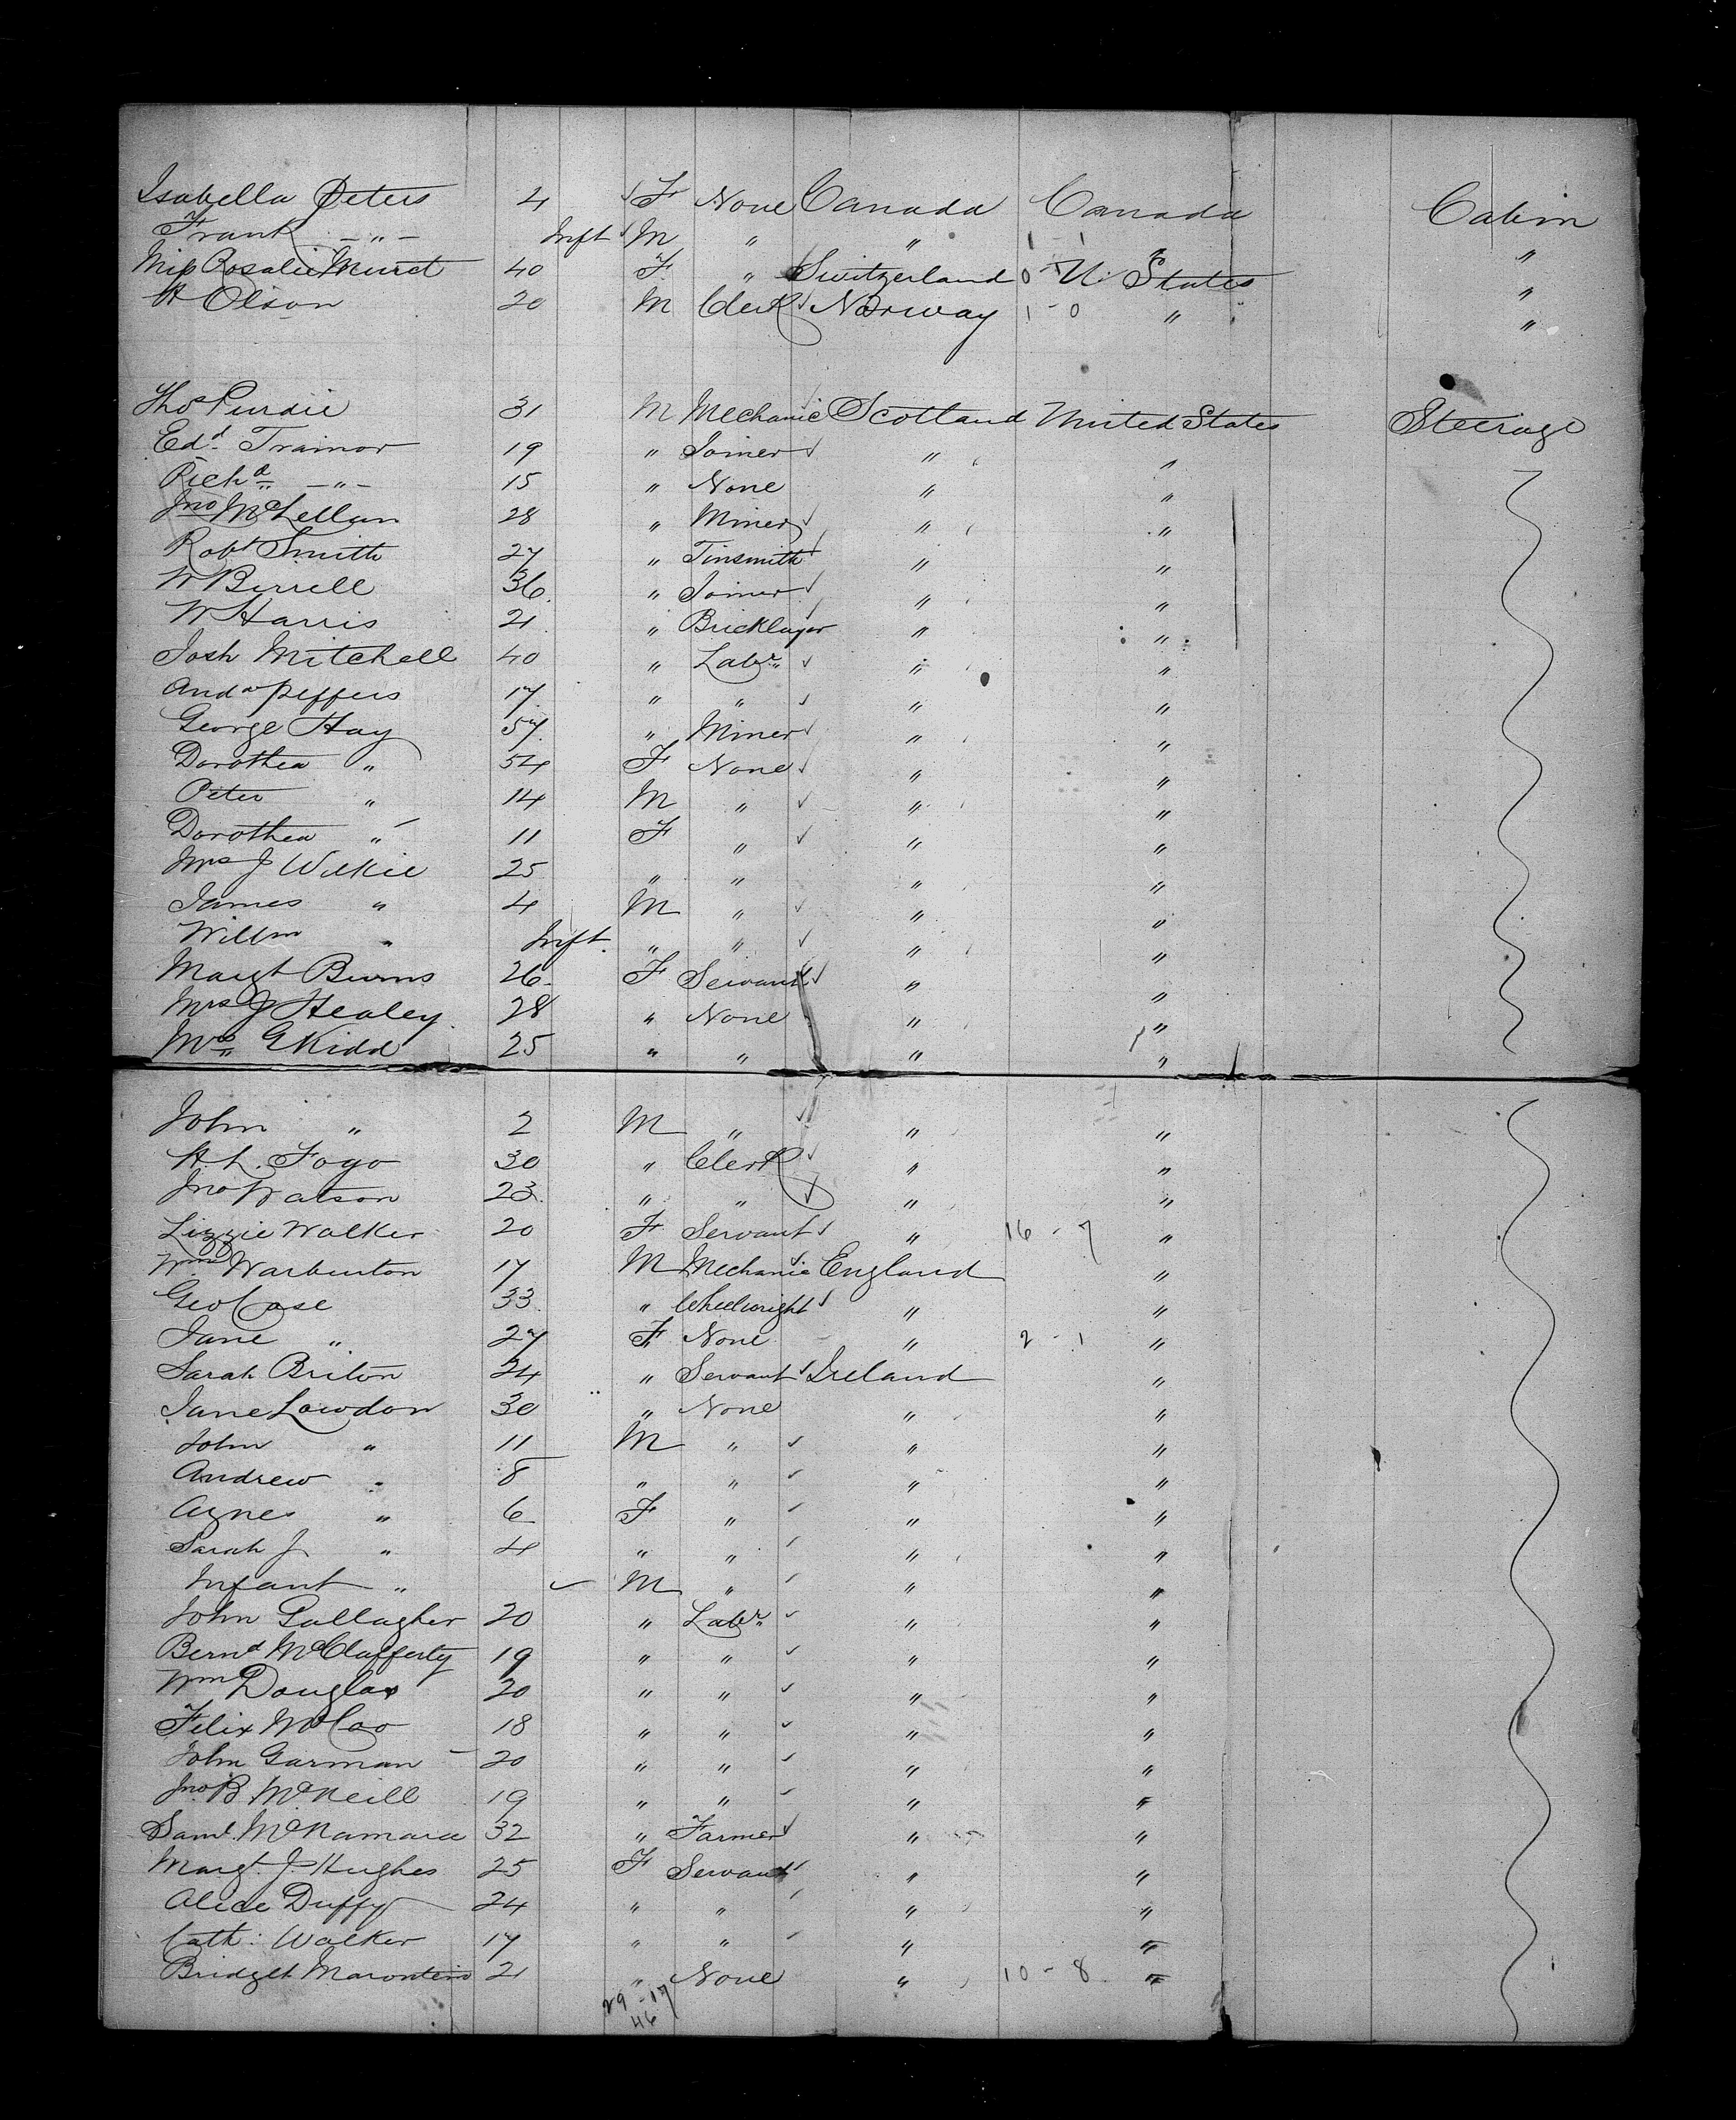 Isabella Peters 4 F None Canada Canada Cabin
Frank -"- Inft M " " 1 - 1 "
Miss Rosalie Muret 40 F " Switzerland 0 - 1 U. States "
H Olson 20 M Clerk Norway 1 - 0 " "
Thos Purdie 31 M Mechanic Scotland United States Steerage
Edd. Trainor 19 " Joiner " "
Richd. -"- 15 " None " "
Jno McLellan 28 " Miner " "
Robt Smith 27 " Tinsmith " "
W Birrell 36 " Joiner " "
W Harris 21 " Bricklayer " "
Josh Mitchell 40 " Labr. " "
Andw Peffers 17 " " " "
George Hay 57 " Miner " "
Dorothea " 54 F None " "
Peter " 14 M " " "
Dorothea " 11 F " " "
Mrs J Wilkie 25 " " " "
James " 4 M " " "
Willm " Inft. " " " "
Margt Burns 26 F Servant " "
Mrs J Healey 28 " None " "
Mrs G Kidd 25 " " " "
John " 2 M " " "
H. L. Fogo 30 " Clerk " "
Jno Watson 23 " " " "
Lizzie Walker 20 F Servant " 16 - 7 "
Wm Warburton 17 M Mechanic England "
Geo Case 33 " Wheelwright " "
Jane " 27 F None " 2 - 1 "
Sarah Briton 24 " Servant Ireland "
Jane Lowdon 30 " None " "
John " 11 M " " "
Andrew " 8 " " " "
Agnes " 6 F " " "
Sarah J " 4 " " " "
Infant " M " " "
John Gallagher 20 " Labr. " "
Bernd McClafferty 19 " " " "
Wm Douglas 20 " " " "
Felix McCoo 18 " " " "
John Garman 20 " " " "
Jno. B McNeill 19 " " " "
Saml. McNamara 32 " Farmer " "
Margt. J. Hughes 25 F Servant " "
Alice Duffy 24 " " " "
Cath: Walker 17 " " " "
Bridget 21 " None " 10 - 8 "
29 - 17
46